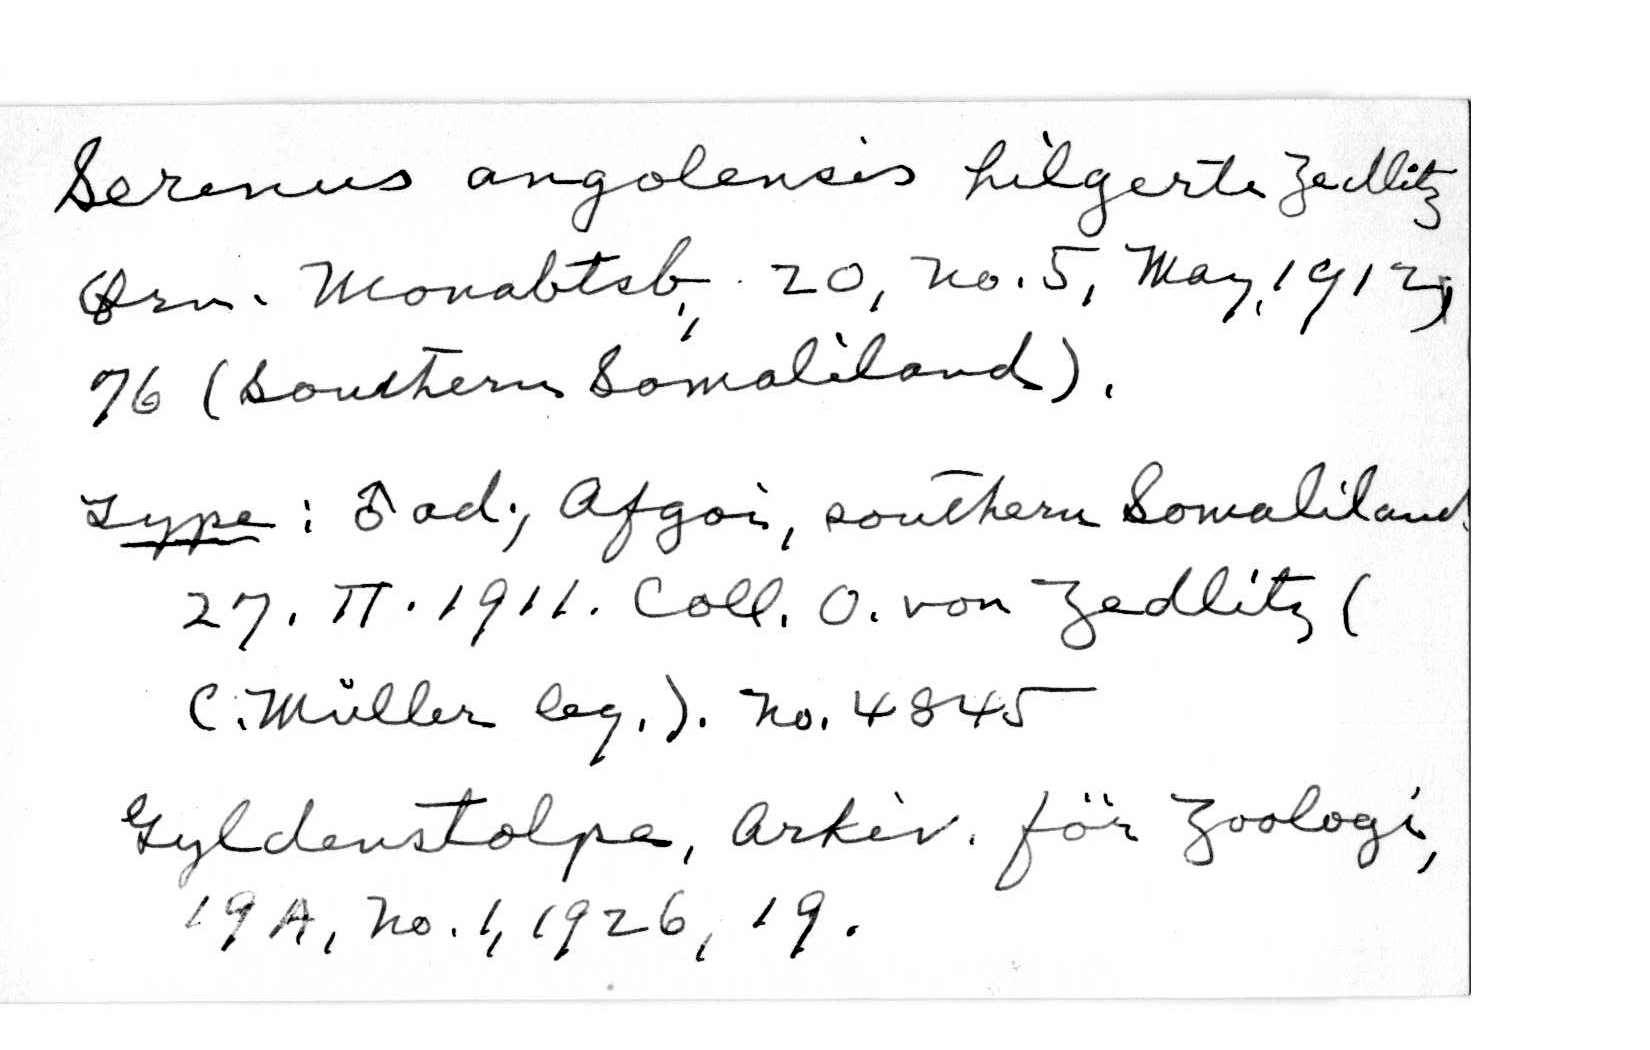 Serinus angolensis hilgerti Zedlitz
Orn. Monabtsb., 20, no. 5, May, 1912,
76 (Southern Somaliland).
Type: ♂ ad., Afgoi, southern Somaliland
27. II. 1911. Coll. O. von Zedlitz (
C. Müller leg.). No. 4845
Gyldenstolpe, Arkiv. för Zoologi,
19A, no. 1, 1926, 19.